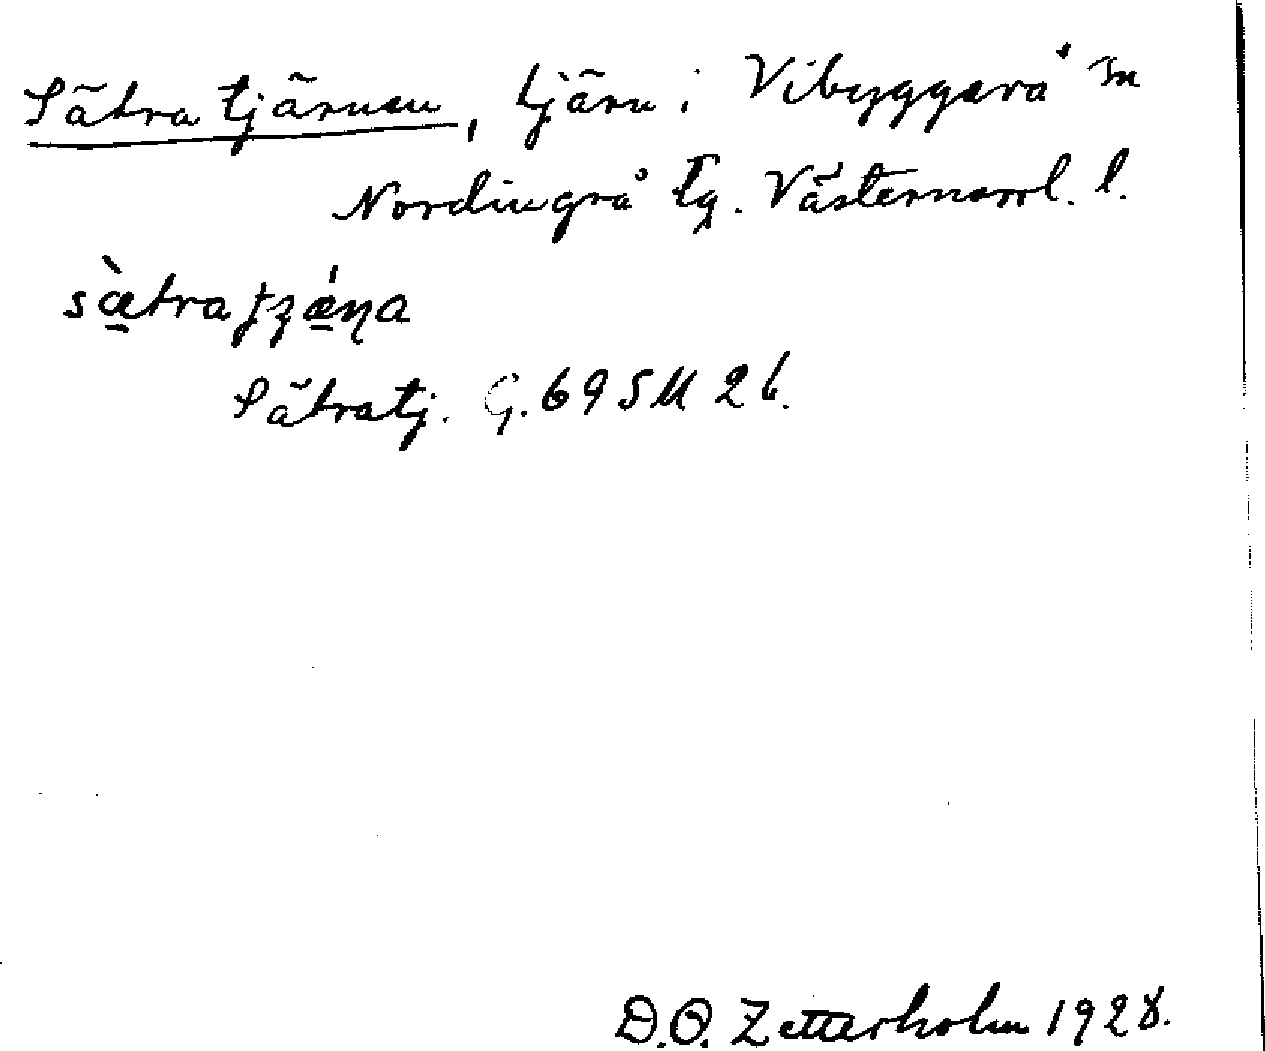 Sätratjärnen, tjärn i Vibyggerå sn
Nordingrå tg. Västernorrl. l.
sæ̀traʈʐǽɳa
Sätratj. G. 69 SU 26.
D.O. Zetterholm 1928.